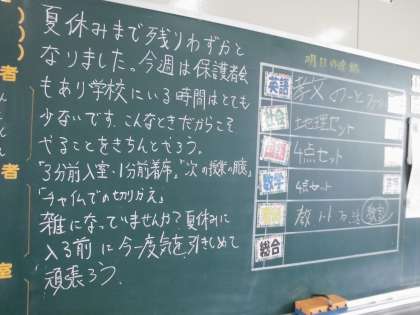 夏休みまで残りわずかと
なりました。今週は保護者会
もあり学校にいる時間はとても
少ないです。こんなときだからこそ
やることをきちんとやろう。
「3分前入室・1分前着席」「次の授業の準備」
「チャイムでの切りかえ」
雑になっていませんか?夏休みに
入る前に今一度気を引きしめて
頑張ろう。
明日の連絡
英語 教 ノート
社会 地理セット
国語 4点セット
数学 4点セット
教室
総合
者
者
室